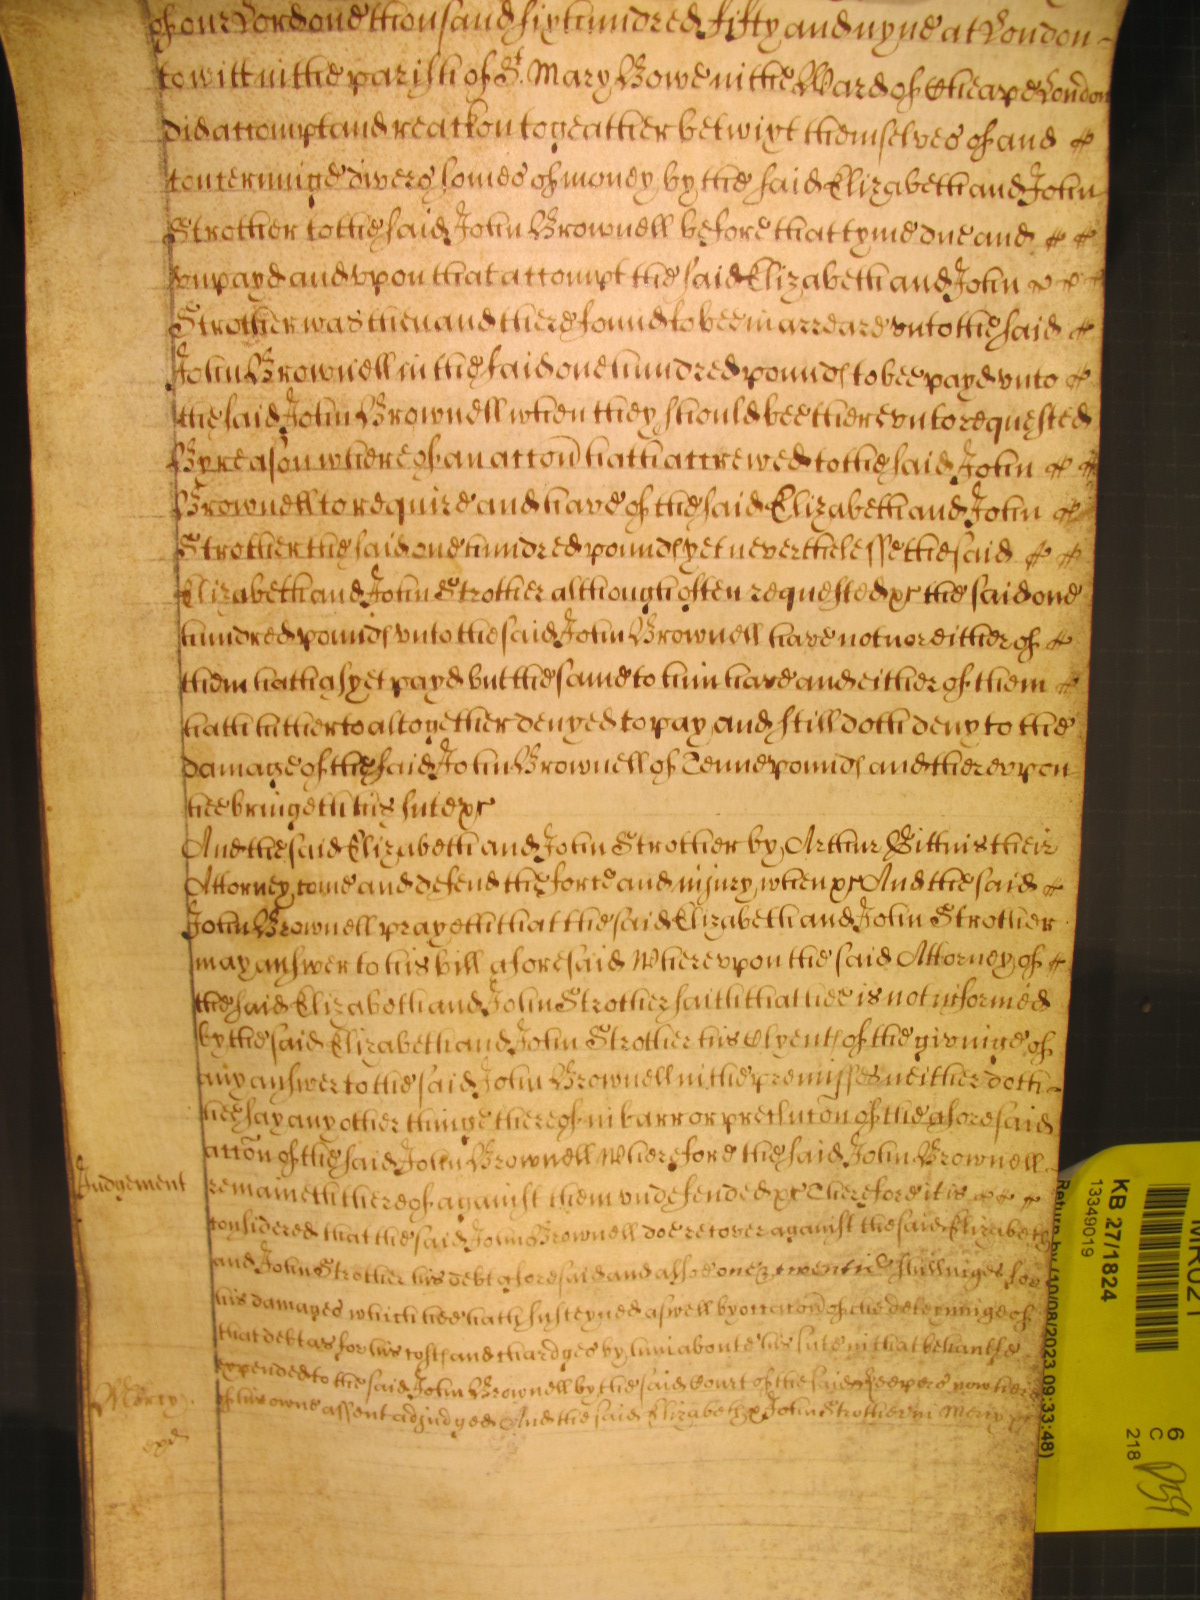 of our Lord one thousand six hundred fifty and nyne at London
to witt in the parish of St. Mary Bowe in the Ward of Cheape London
did accompt and reackon togeather betwixt themselves of and
concerninge divers somes of money by the said Elizabeth and John
Strother to the said John Brownell before that tyme due and
vnpayd and vpon that accompt the said Elizabeth and John
Strother was then and there found to bee in arreare vnto the said
John Brownell in the said one hundred pounds to bee payd vnto
the said John Brownell when they should bee therevnto requested
By reason whereof an accōn hath accrewed to the said John
Brownell to require and have of the said Elizabeth and John
Strother the said one hundred pounds yet neverthelesse the said
Elizabeth and John Strother although often requested &c the said one
hundred pounds vnto the said John Brownell have not nor either of
them hath as yet payd but the same to him have and either of them
hath hitherto altogether denyed to pay and still doth deny to the
damage of the said John Brownell of Tenne pounds and therevpon
hee bringeth his sute &c
And the said Elizabeth and John Strother by Arthur their
Attorney come and defend the force and injury when &c And the said
John Brownell prayeth that the said Elizabeth and John Strother
may answer to his bill aforesaid Wherevpon the said Attorney of
the said Elizabeth and John Strother saith that hee is not informed
by the said Elizabeth and John Strother his Clyents of the givinge of
any answer to the said John Brownell in the premisses neither doth
hee say any other thinge thereof in barr or preclucōn of the aforesaid
accōn of the said John Brownell Wherefore the said John Brownell
Judgement
remaineth thereof against them vndefended &c Therefore it is
considered that the said John Brownell doe recover against the said Elizabeth
and John Strother his debt aforesaid and alsoe twentie shillinges for
his damages which hee hath susteyned aswell by occacōn of the deteyninge of
that debt as for his costs and chardges by him aboute his sute in that behaulfe
expended to the said John Brownell by the said Court of the said Keepers now here
Mercy
of his owne assent adjudged And the said Elizabeth & John Strother in Mercy &c
MR021
KB 27/1824
13349019
Return by (10/08/2023 09:33:48)
6
C
218